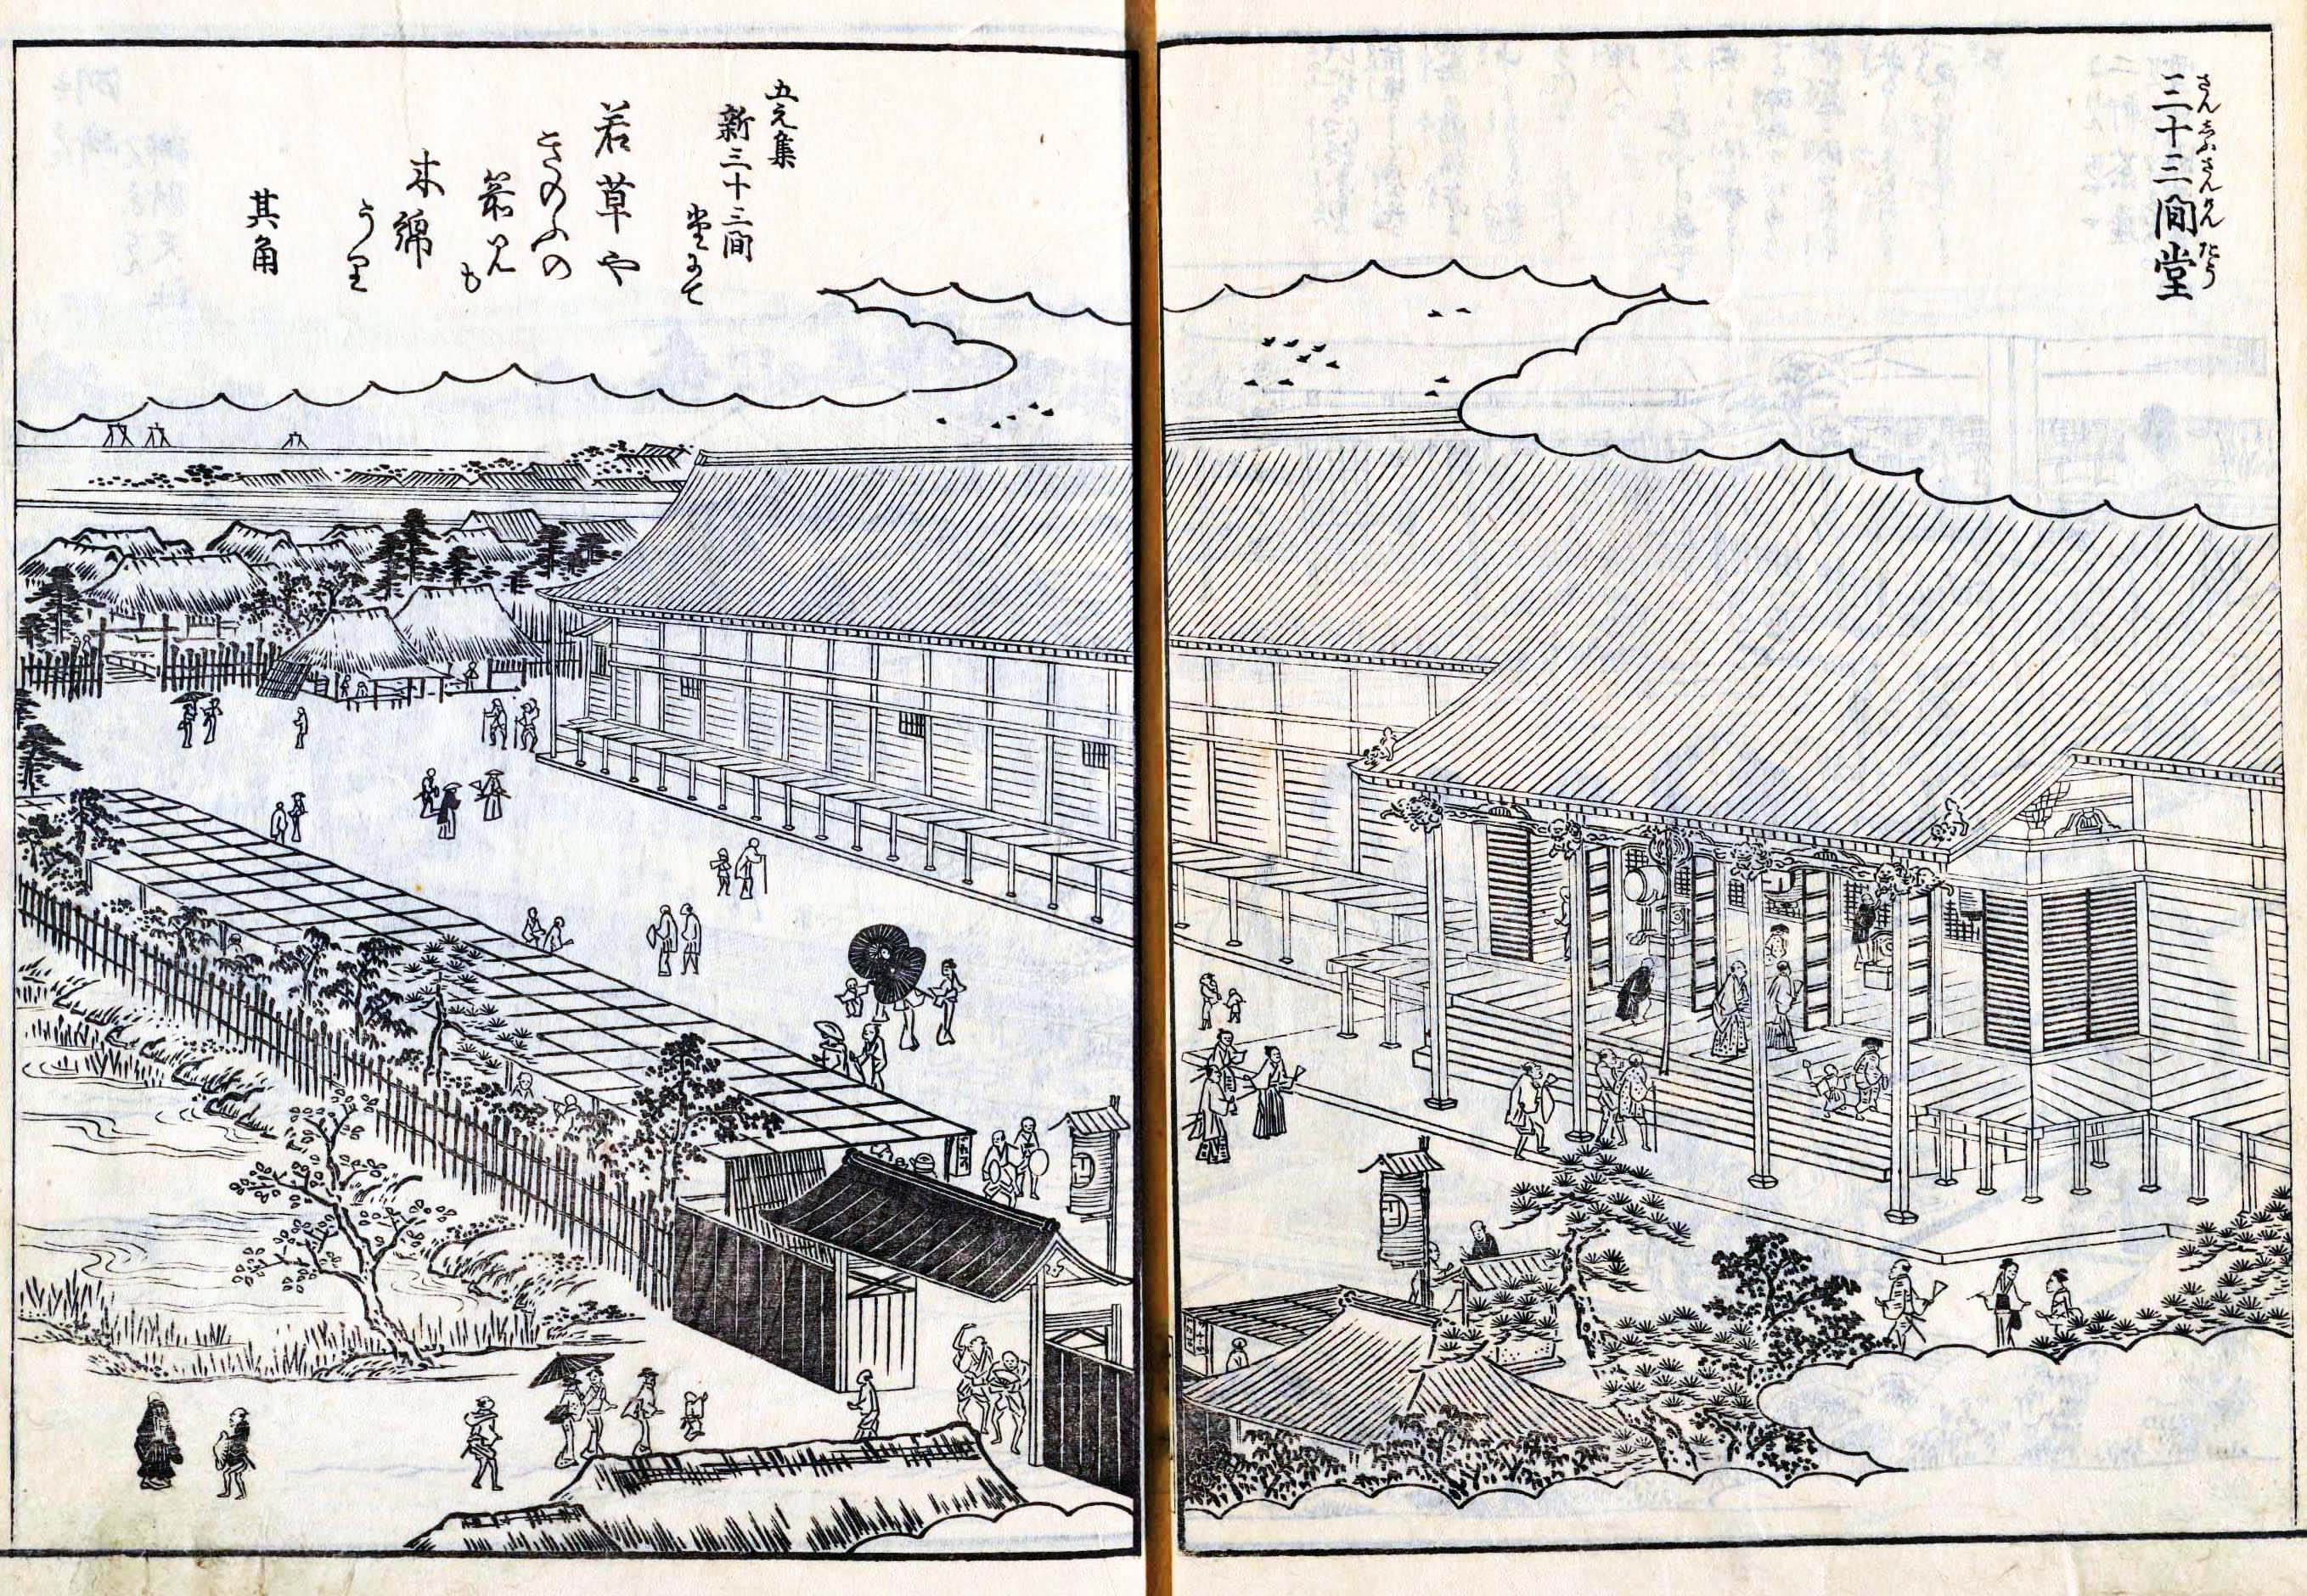 三十三間堂
さんじふさんげんだう
五元集
新三十三間
堂にて
若草や
きのふの
箭見も
木綿
うり
其角